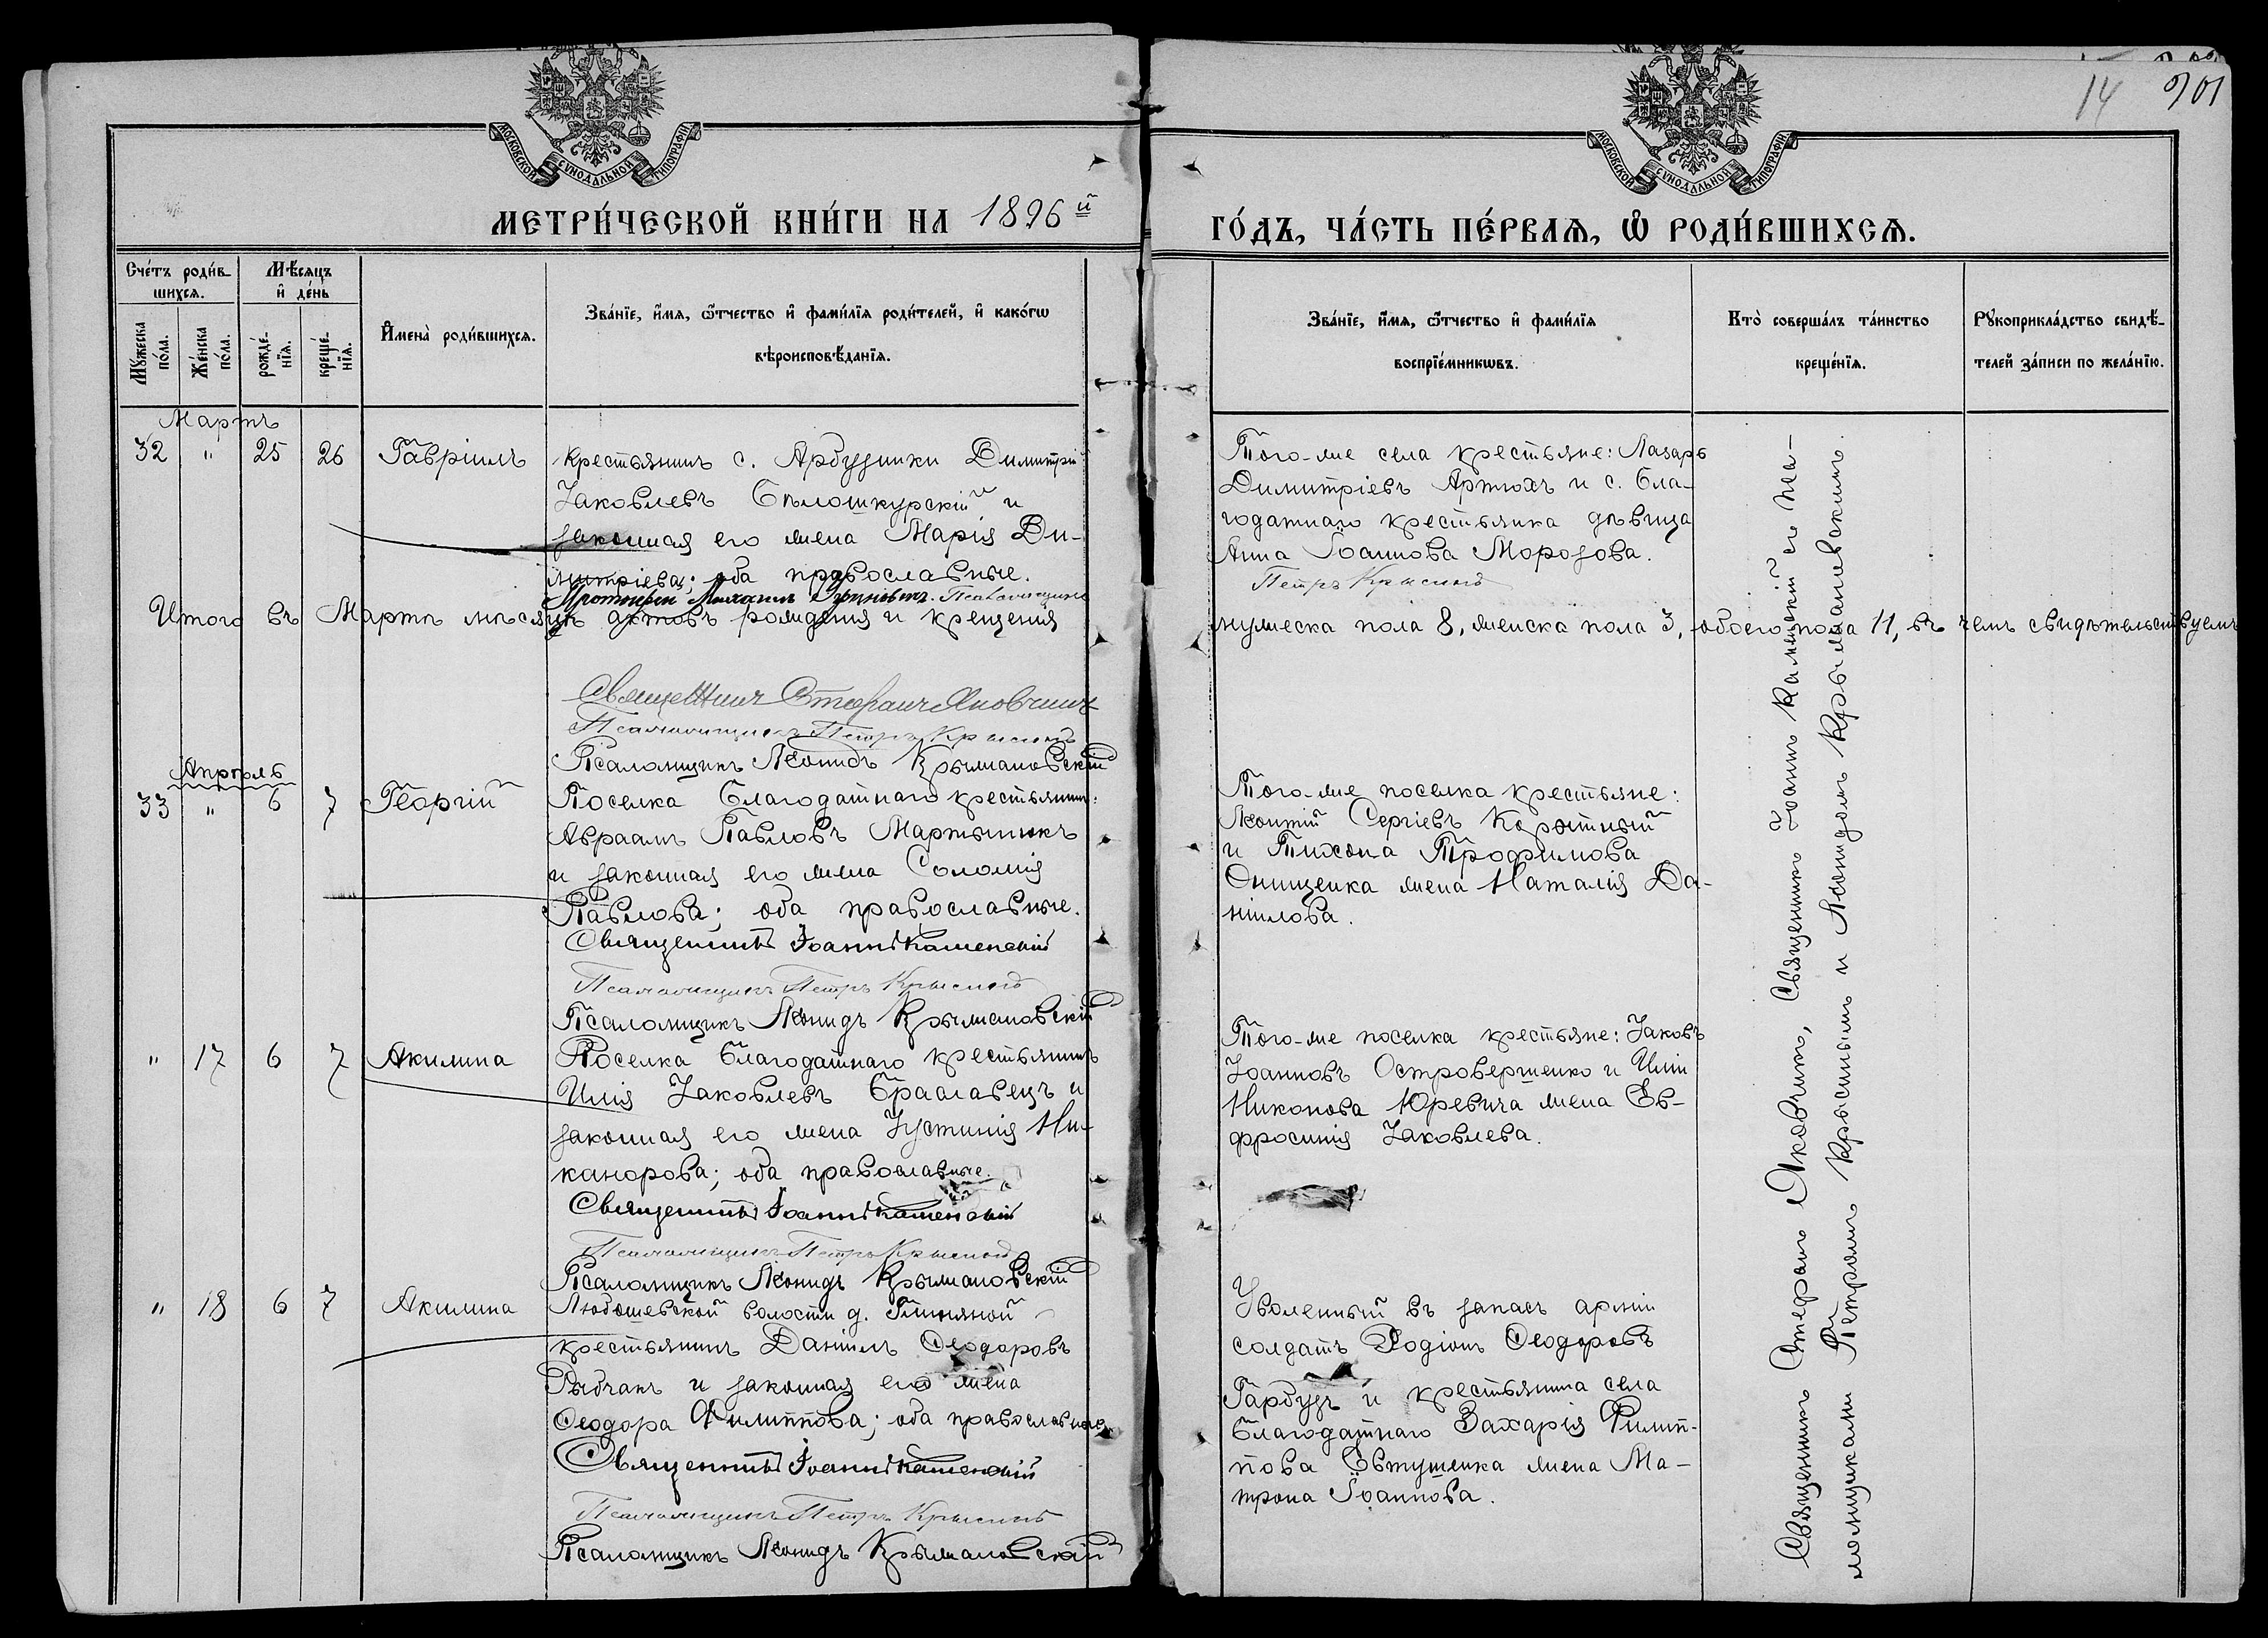 14 901
МОСКОВСКОЙ СѴНОДАЛЬНОЙ ТИПОГРАФІИ
МОСКОВСКОЙ СѴНОДАЛЬНОЙ ТИПОГРАФІИ
МЕТРИ́ЧЕСКОЙ КНИ́ГИ НА 1896й
ГО́ДЪ, ЧА́СТЬ ПЕ́РВАѦ, Ѡ РОДИ́ВШИХСѦ.
Сче́тъ роди́в-
шихсѧ.
Мѣ́сѧцъ
и҆ де́нь
Мꙋ́жеска
по́ла.
Же́нска
по́ла.
рожде́-
нїѧ.
креще́-
нїѧ.
И҆мена̀ роди́вшихсѧ.
Зва́нїе, и҆́мѧ, ѻ҆́тчество и҆ фами́лїѧ роди́телей, и҆ како́гѡ
вѣроисповѣ́данїѧ.
Зва́нїе, и҆́мѧ, ѻ҆́тчество и҆ фами́лїѧ
воспрїе́мникѡвъ.
Кто̀ соверша́лъ та́инство
креще́нїѧ.
Рꙋкоприкла́дство свидѣ́-
телей за́писи по жела́нїю.
Мартъ
32 " 25 26 Гавріилъ
Крестьянинъ с. Арбузинки Димитрій
Іаковлевъ Бѣлошкурскій и
законная его жена Марія Ди-
митріева; оба православные.
Протоіерей Михаилъ Псаломщикъ
Того-же села крестьяне: Лазарь
Димитріевъ Артюхъ и с. Бла-
годатнаго крестьянка дѣвица
Анна Іоаннова Морозова.
Петръ Крысинъ
Итого въ Мартѣ мѣсяцѣ актовъ рожденія и крещенія
мужеска пола 8, женска пола 3, обоего пола 11, въ чемъ свидѣтельствуемъ
Священникъ Стефанъ Яковчинъ
Псаломщикъ Петръ Крысинъ
Псаломщикъ Леонидъ Крыжановскій
Апрѣль
33 " 6 7 Георгій
Поселка Благодатнаго крестьянинъ:
Авраамъ Павловъ Мартынюкъ
и законная его жена Соломія
Павлова; оба православные.
Священникъ Іоаннъ Каменскій
Псаломщикъ Петръ Крысинъ
Псаломщикъ Леонидъ Крыжановскій
Того-же поселка крестьяне:
Леонтій Сергіевъ Коротный
и Тихона Трофимова
Онищенка жена Наталія Да-
ніилова.
" 17 6 7 Акилина
Поселка Благодатнаго крестьянинъ
Илія Іаковлевъ Браславецъ и
законная его жена Іустинія Ни-
канорова; оба православные.
Священникъ Іоаннъ Каменскій
Псаломщикъ Петръ Крысинъ
Псаломщикъ Леонидъ Крыжановскій
Того-же поселка крестьяне: Іаковъ
Іоанновъ Островершенко и Иліи
Никонова Юревича жена Ев-
фросинія Іаковлева.
" 18 6 7 Акилина
Любошевской волости д.
крестьянинъ Даніилъ Ѳеодоровъ
Рыбчакъ и законная его жена
Ѳеодора Филиппова; оба православные.
Священникъ Іоаннъ Каменскій
Псаломщикъ Петръ Крысинъ
Псаломщикъ Леонидъ Крыжановскій
Уволенный въ запасъ арміи
солдатъ Родіонъ Ѳеодоровъ
Гарбузъ и крестьянина села
Благодатнаго Захарія Филип-
пова Евтушенка жена Ма-
трона Іоаннова.
Священникъ Стефанъ Яковчинъ, Священникъ Іоаннъ Каменскій съ пса-
ломщиками Петромъ Крысинымъ и Леонидомъ Крыжановскимъ.